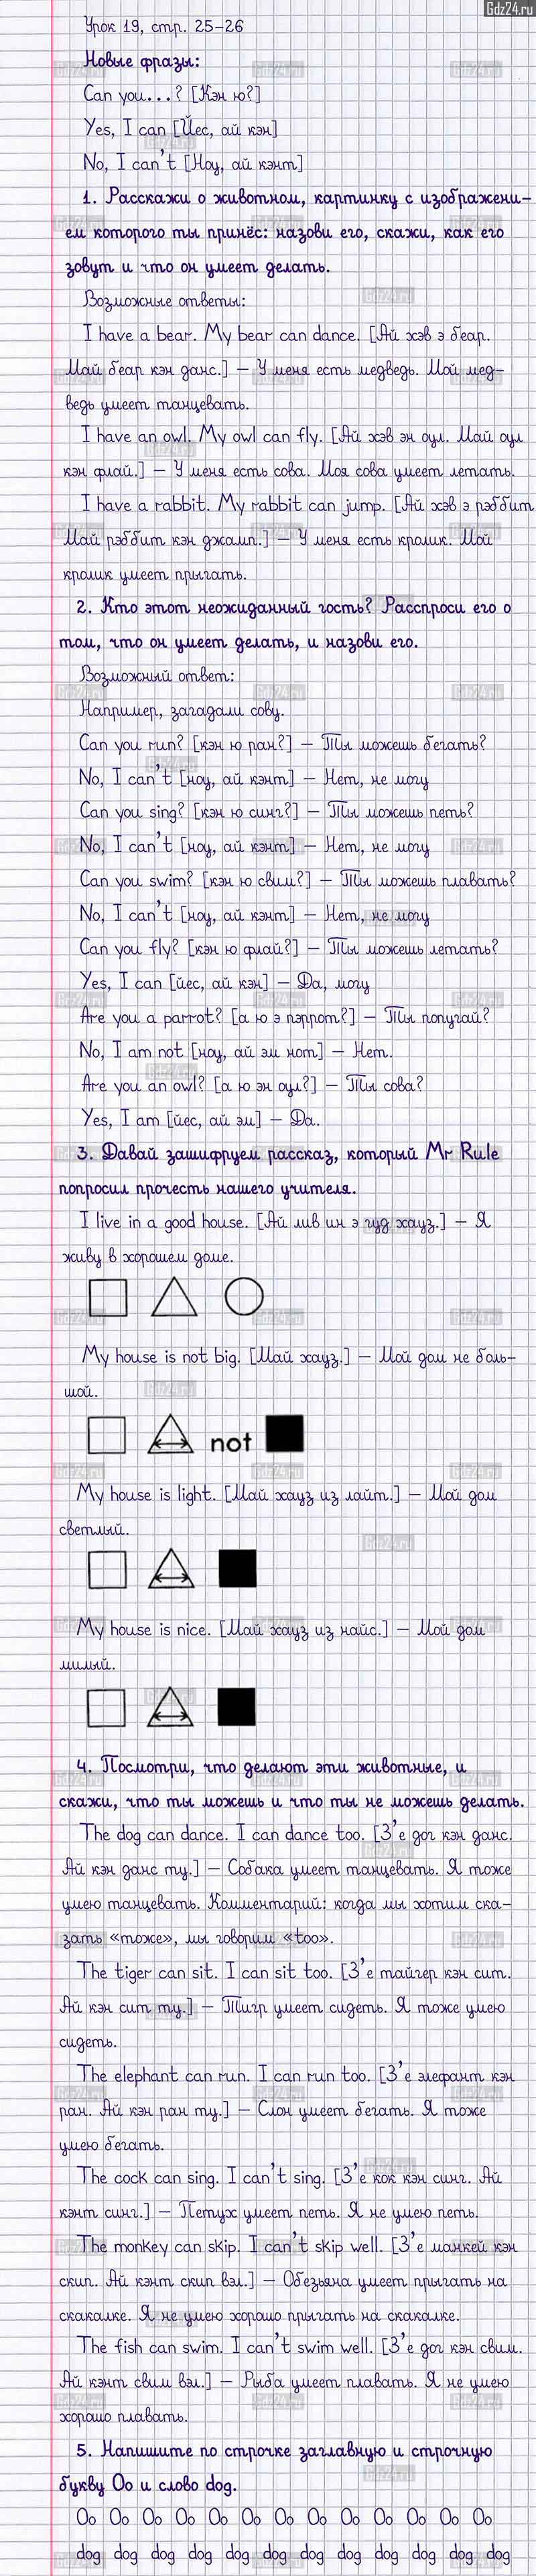 Gdz24.ru
Урок 19, стр. 25-26
Новые фразы:
Can you...? [Кэн ю?]
Yes, I can [Йес, ай кэн]
No, I can't [Ноу, ай кэнт]
1. Расскажи о животном, картинку с изображени-
ем которого ты принёс: назови его, скажи, как его
зовут и что он умеет делать.
Возможные ответы:
I have a bear. My bear can dance. [Ай хэв э беар.
Май беар кэн данс.] – У меня есть медведь. Мой мед-
ведь умеет танцевать.
I have an owl. My owl can fly. [Ай хэв эн оул. Май оул
кэн флай.] – У меня есть сова. Моя сова умеет летать.
I have a rabbit. My rabbit can jump. [Ай хэв э рэббит
Май рэббит кэн джамп.] – У меня есть кролик. Мой
кролик умеет прыгать.
2. Кто этот неожиданный гость? Расспроси его о
том, что он умеет делать, и назови его.
Возможный ответ:
Например, загадали сову.
Can you run? [кэн ю ран?] – Ты можешь бегать?
No, I can't [ноу, ай кэнт] – Нет, не могу
Can you sing? [кэн ю синг?] – Ты можешь петь?
No, I can't [ноу, ай кэнт] – Нет, не могу
Can you swim? [кэн ю свим?] – Ты можешь плавать?
No, I can't [ноу, ай кэнт] – Нет, не могу
Can you fly? [кэн ю флай?] – Ты можешь летать?
Yes, I can [йес, ай кэн] – Да, могу
Are you a parrot? [а ю э пэррот?] – Ты попугай?
No, I am not [ноу, ай эм нот] – Нет.
Are you an owl? [а ю эн оул?] – Ты сова?
Yes, I am [йес, ай эм] – Да.
3. Давай зашифруем рассказ, который Mr Rule
попросил прочесть нашего учителя.
I live in a good house. [Ай лив ин э гуд хауз.] – Я
живу в хорошем доме.
My house is not big. [Май хауз.] – Мой дом не боль-
шой.
not
My house is light. [Май хауз из лайт.] – Мой дом
светлый.
My house is nice. [Май хауз из найс.] – Мой дом
милый.
4. Посмотри, что делают эти животные, и
скажи, что ты можешь и что ты не можешь делать.
The dog can dance. I can dance too. [З'е дог кэн данс.
Ай кэн данс ту.] – Собака умеет танцевать. Я тоже
умею танцевать. Комментарий: когда мы хотим ска-
зать «тоже», мы говорим «too».
The tiger can sit. I can sit too. [З'е тайгер кэн сит.
Ай кэн сит ту.] – Тигр умеет сидеть. Я тоже умею
сидеть.
The elephant can run. I can run too. [З'е элефант кэн
ран. Ай кэн ран ту.] – Слон умеет бегать. Я тоже
умею бегать.
The cock can sing. I can't sing. [З'е кок кэн синг. Ай
кэнт синг.] – Петух умеет петь. Я не умею петь.
The monkey can skip. I can't skip well. [З'е манкей кэн
скип. Ай кэнт скип вэл.] – Обезьяна умеет прыгать на
скакалке. Я не умею хорошо прыгать на скакалке.
The fish can swim. I can't swim well. [З'е дог кэн свим.
Ай кэнт свим вэл.] – Рыба умеет плавать. Я не умею
хорошо плавать.
5. Напишите по строчке заглавную и строчную
букву Oo и слово dog.
Oo Oo Oo Oo Oo Oo Oo Oo Oo Oo Oo Oo Oo
dog dog dog dog dog dog dog dog dog dog dog dog